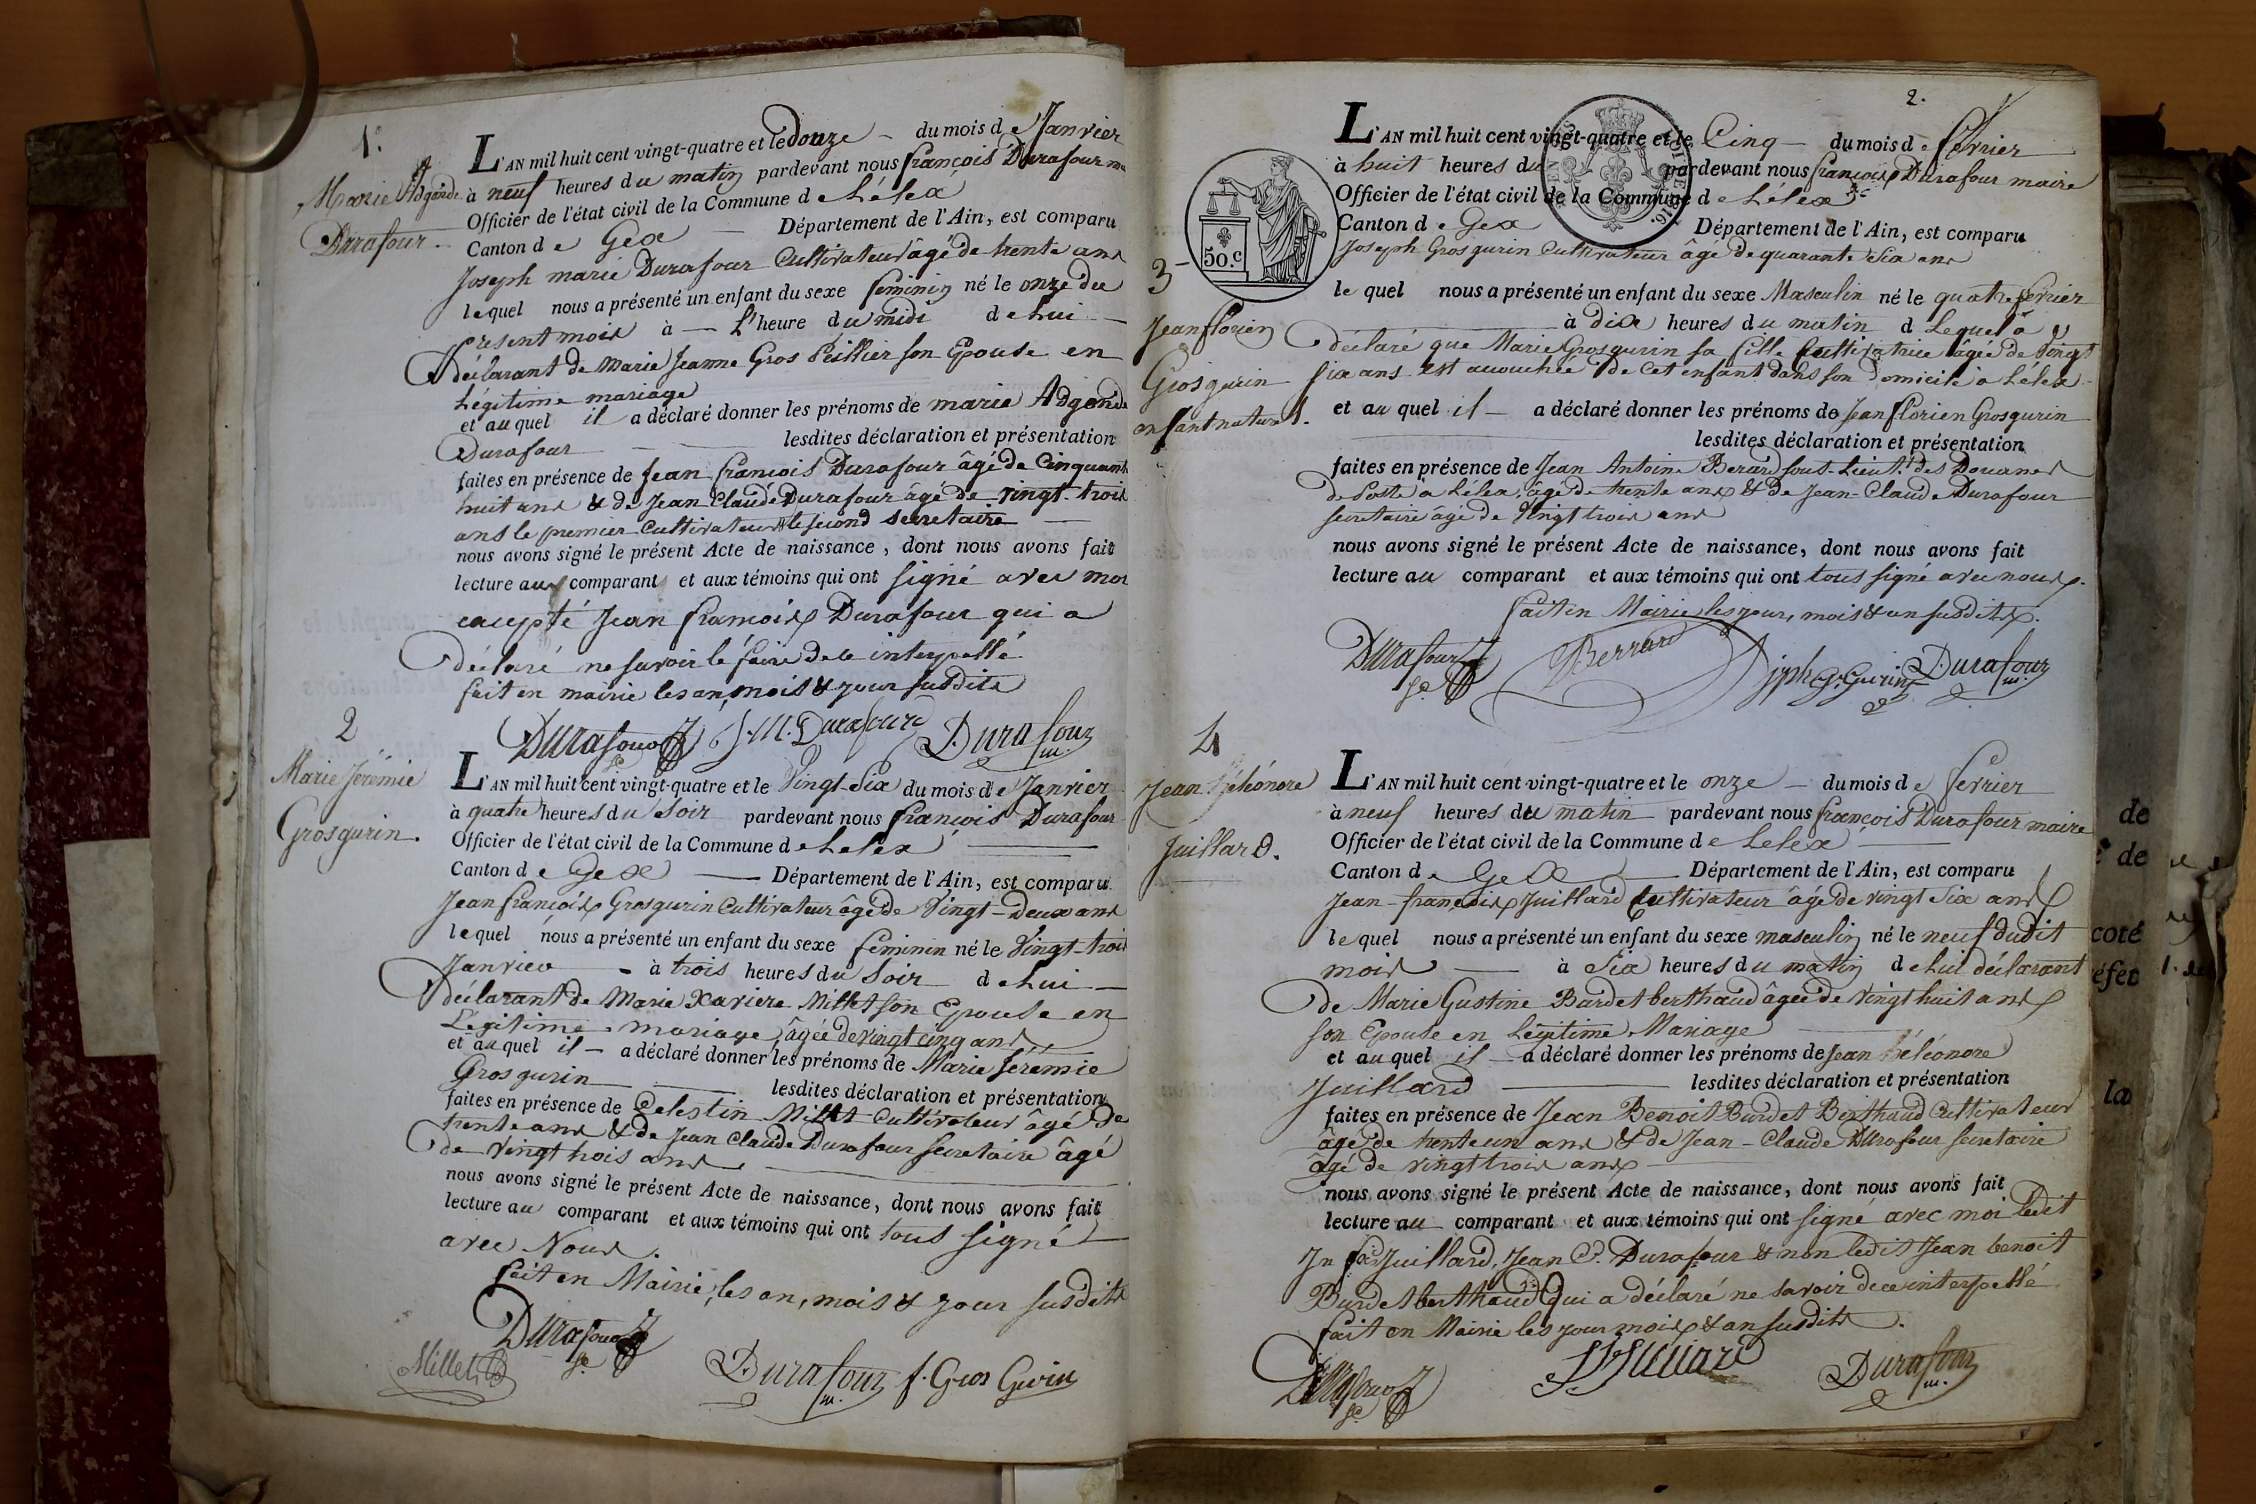 1.
Marie Adgonde
Durafour.
L'AN mil huit cent vingt-quatre et le douze du mois de Janvier
à neuf heures du matin pardevant nous françois Durafour
Officier de l'état civil de la Commune de Lélex
Canton de Gex Département de l'Ain, est comparu
Joseph marie Durafour Cultivateur âgé de trente ans
lequel nous a présenté un enfant du sexe feminin né le onze du
present mois à L'heure du midi de lui
déclarant de Marie Jeanne Gros Peillier son Epouse en
Légitime mariage
et auquel il a déclaré donner les prénoms de marie Adgonde
Durafour lesdites déclaration et présentation
faites en présence de Jean françois Durafour âgé de Cinquante
huit ans & de Jean Claude Durafour âgé de vingt-trois
ans le premier Cultivateur & le second secretaire
nous avons signé le présent Acte de naissance, dont nous avons fait
lecture aux comparants et aux témoins qui ont signé avec moi
excepté Jean françois Durafour qui a
déclaré ne savoir le faire de ce interpellé
fait en mairie les an, mois & jour susdits
Durafour J. M. Durafour Durafour m.
2
Marie Jérémie
Grosgurin.
L'AN mil huit cent vingt-quatre et le Vingt-Six du mois de Janvier
à quatre heures du Soir pardevant nous françois Durafour
Officier de l'état civil de la Commune de Lelex
Canton de Gex Département de l'Ain, est comparu
Jean françois Grosgurin Cultivateur âgé de Vingt-Deux ans
lequel nous a présenté un enfant du sexe féminin né le Vingt-trois
Janvier à trois heures du Soir de lui
déclarant de Marie Xaviere Millet son Epouse en
Légitime mariage, âgée de vingt cinq ans
et auquel il a déclaré donner les prénoms de Marie Jérémie
Grosgurin lesdites déclaration et présentation
faites en présence de Celestin Millet Cultivateur âgé de
trente ans & de Jean Claude Durafour Secretaire âgé
de vingt trois ans
nous avons signé le présent Acte de naissance, dont nous avons fait
lecture au comparant et aux témoins qui ont tous signé
avec Nous.
fait en Mairie, les an, mois & jour susdits
Durafour
Millet Durafour m. f. Gros Gurin
2.
50.c
3
Jean florien
Grosgurin
enfant naturel.
L'AN mil huit cent vingt-quatre et le Cinq du mois de février
à huit heures du pardevant nous françois Durafour maire
Officier de l'état civil de la Commune de Lélex
Canton de Gex Département de l'Ain, est comparu
Joseph Grosgurin Cultivateur âgé de quarante Six ans
lequel nous a présenté un enfant du sexe Masculin né le quatre février
à dix heures du matin d Lequel a
déclaré que Marie Grosgurin sa fille Cultivatrice âgée de Vingt
six ans est accouchée de cet enfant dans son Domicile à Lélex
et auquel il a déclaré donner les prénoms de Jean florien Grosgurin
lesdites déclaration et présentation
faites en présence de Jean Antoine Berard sous-Lieut. des Douanes
de Poste à Lélex, âgé de trente ans & de Jean-Claude Durafour
secretaire âgé de Vingt trois ans
nous avons signé le présent Acte de naissance, dont nous avons fait
lecture au comparant et aux témoins qui ont tous signé avec nous.
fait en Mairie les jour, mois & an susdits.
Durafour Berrard Jph G. Gurin Durafour m.
4
Jean Héléonore
Juillard.
L'AN mil huit cent vingt-quatre et le onze du mois de fevrier
à neuf heures du matin pardevant nous françois Durafour maire
Officier de l'état civil de la Commune de Lelex
Canton de Gex Département de l'Ain, est comparu
Jean-françois Juillard Cultivateur âgé de vingt Six ans
lequel nous a présenté un enfant du sexe masculin né le neuf dudit
mois à Six heures du matin de lui déclarant
de Marie Gustine Burdet berthaud âgée de vingt huit ans
son Epouse en Légitime Mariage
et auquel il a déclaré donner les prénoms de Jean héléonore
Juillard lesdites déclaration et présentation
faites en présence de Jean Benoit Burdet Berthaud Cultivateur
âgé de trente un ans & de Jean-Claude Durafour secretaire
âgé de vingt trois ans
nous avons signé le présent Acte de naissance, dont nous avons fait
lecture au comparant et aux témoins qui ont signé avec moi ledit
Jn fois Juillard, Jean C. Durafour & non ledit Jean benoit
Burdet berthaud Qui a déclaré ne savoir de ce interpellé
fait en Mairie les jour mois & an susdits.
Durafour Juillard Durafour m.
de
de
coté
la